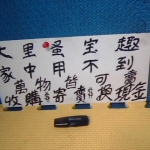 大里蚤宝趣
家中甲不到
萬物皆可賣
收購寄賣換現金